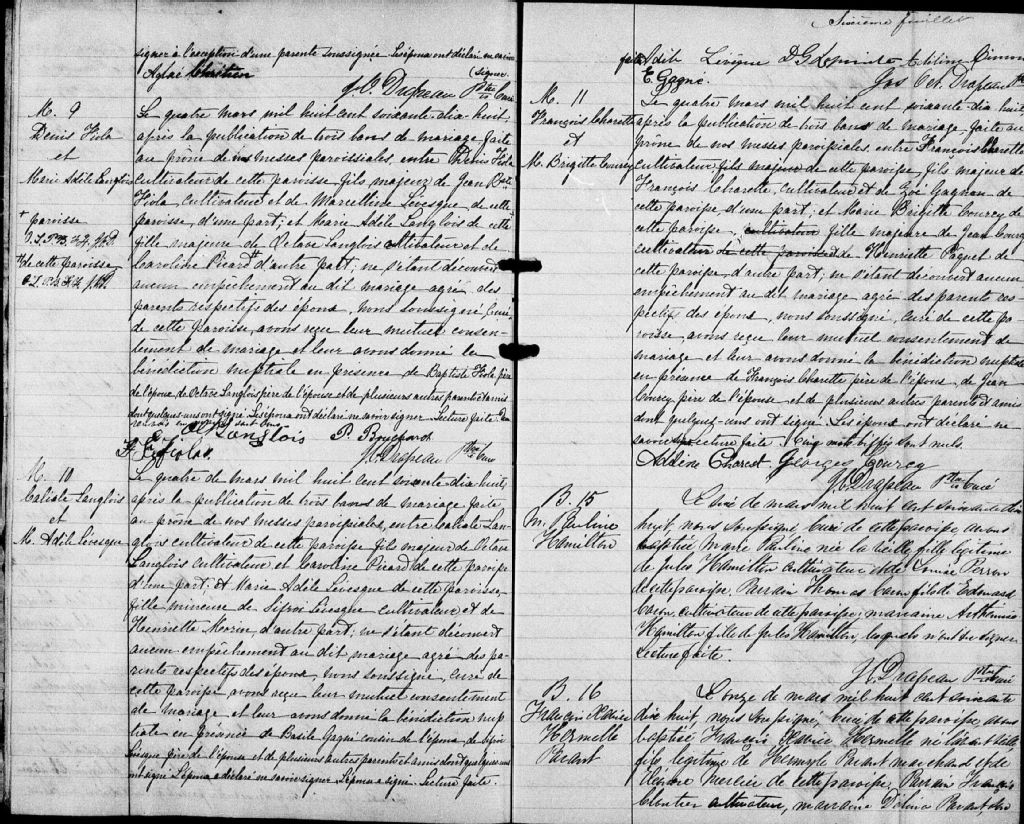 signer à l'exception d'une parente soussignée. Les époux ont déclaré ne savoir
(signer.
Aglaé Chrétien
J. O. Drapeau Ptre Curé
M. 9
Denis Fiola
et
Marie Adèle Langlois
+ paroisse
H de cette paroisse
Le quatre mars mil huit cent soixante dix-huit,
après la publication de trois bans de mariage faite
au prône de nos messes paroissiales, entre Denis Fiola
cultivateur de cette paroisse, fils majeur de Jean Bte
Fiola, cultivateur et de Marcelline Lévesque, de cette
paroisse, d'une part; et Marie Adèle Langlois de cette
fille majeure de Octave Langlois cultivateur et de
Caroline Picard H d'autre part; ne s'étant découvert
aucun empêchement au dit mariage agré des
parents respectifs des épous, nous soussigné Curé
de cette paroisse, avons reçu leur mutuel consen-
tement de mariage et leur avons donné la
bénédiction nuptiale en présence de Baptiste Fiola père
de l'époux, de Octave Langlois père de l'épouse et de plusieurs autres parents et amis
dont quelques uns ont signé. Les époux ont déclaré ne savoir signer. Lecture faite.
Langlois P. Bouchard
J. O. Drapeau Ptre Curé
M. 10
Calixte Langlois
et
M. Adèle Lévesque
Le quatre de mars mil huit cent soixante dix huit,
après la publication de trois bans de mariage faite
au prône de nos messes paroissiales, entre Calixte Lan-
glois cultivateur de cette paroisse fils majeur de Octave
Langlois cultivateur et Caroline Picard de cette paroisse
d'une part; et Marie Adèle Lévesque de cette paroisse,
fille mineure de Lévesque cultivateur et de
Henriette Morin, d'autre part; ne s'étant découvert
aucun empêchement au dit mariage agré des pa-
rents respectifs des épous, nous soussigné, curé de
cette paroisse avons reçu leur mutuel consentement
de mariage et leur avons donné la bénédiction nup
tiale en présence de Basile Gagné cousin de l'époux, de
Lévesque père de l'épouse et de plusieurs autres parents et amis dont quelques uns
ont signé. L'époux a déclaré ne savoir signer. L'épouse a signé. Lecture faite.
Sixième feuillet
Odile Lévêque D. G.
E. Gagné. Jos Oct. Drapeau Ptre
M. 11
François Charette
et
M. Brigitte Courcy
Le quatre mars mil huit cent soixante dix huit,
après la publication de trois bans de mariage, faite au
prône de nos messes paroissiales entre François Charette
cultivateur, fils majeur de cette paroisse, fils majeur de
François Charette, cultivateur et de Zoé Gagnon de
cette paroisse, d'une part; et Marie Brigitte Courcy de
cette paroisse, cultivateur fille majeure de Jean Courcy
cultivateur de cette paroisse et de Henriette Paquet de
cette paroisse, d'autre part; ne s'étant découvert aucun
empêchement au dit mariage, agré des parents res-
pectifs des épous, nous soussigné, curé de cette pa
roisse, avons reçu leur mutuel consentement de
mariage et leur avons donné la bénédiction nuptiale
en présence de François Charette père de l'époux, de Jean
Courcy, père de l'épouse et de plusieurs autres parents et amis
dont quelques-uns ont signé. Les époux ont déclaré ne
savoir signer lecture faite. Cinq mots biffés sont nuls.
Charest Georges Courcy
J. O. Drapeau Ptre Curé
B. 15
M. Pauline
Hamilton
Le six de mars mil huit cent soixante dix
huit, nous soussigné curé de cette paroisse avons
baptisé Marie Pauline née la veille fille légitime
de Jules Hamilton cultivateur et de Louise Perron
de cette paroisse. Parrain Thomas Caron fils de Edouard
Caron, cultivateur de cette paroisse; marraine Arthémise
Hamilton fille de Jules Hamilton, lesquels n'ont su signer.
Lecture faite.
J. O. Drapeau Ptre Curé
B. 16
François Xavier
Hormelle
Parant
Le onze de mars mil huit cent soixante
dix huit, nous soussigné, curé de cette paroisse avons
baptisé François Xavier Hormelle né la veille
fils légitime de Parant marchand et de
Mercier de cette paroisse. Parrain François
Cloutier cultivateur, marraine Délina Parant,